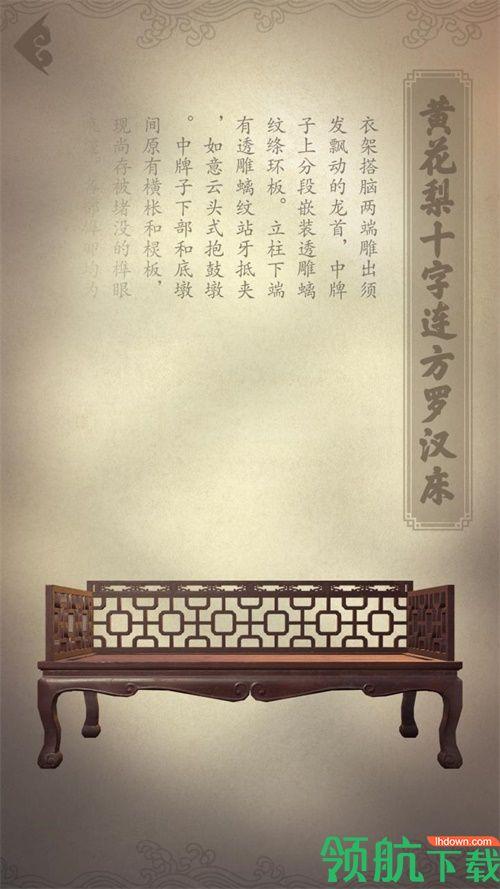 黄花梨十字连方罗汉床
衣架搭脑两端雕出须
发飘动的龙首，中牌
子上分段嵌装透雕螭
纹绦环板。立柱下端
有透雕螭纹站牙抵夹
，如意云头式抱鼓墩
。中牌子下部和底墩
间原有横枨和棂板，
现尚存被堵没的榫眼
lhdown.com
领航下载